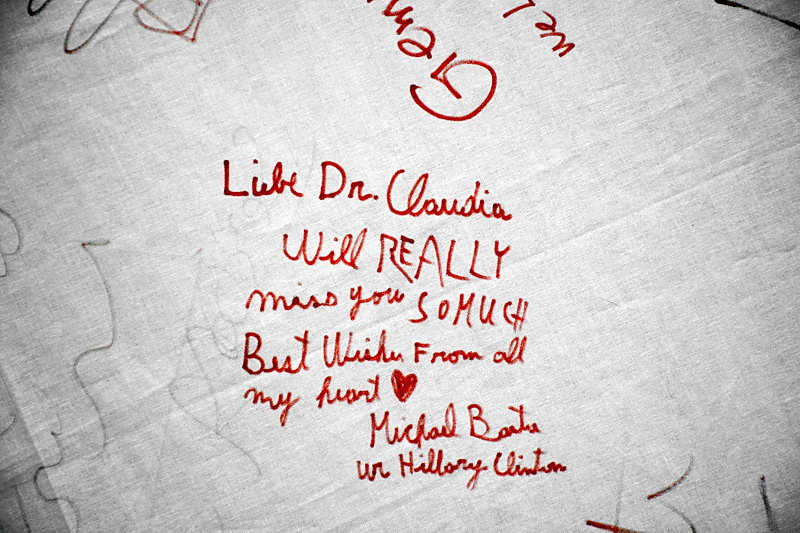 Gem
we
Liebe Dr. Claudia
Will REALLY
miss you SO MUCH
Best Wishes From all
my heart
Michael
ur Hillary Clinton